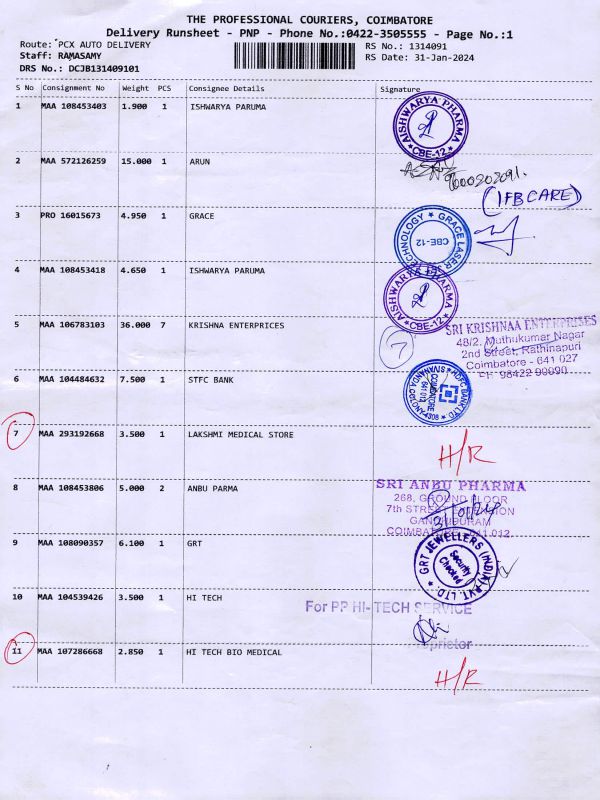 THE PROFESSIONAL COURIERS, COIMBATORE
Delivery Runsheet - PNP - Phone No.:0422-3505555 - Page No.:1
Route: PCX AUTO DELIVERY
RS No.: 1314091
Staff: RAMASAMY
RS Date: 31-Jan-2024
DRS No.: DCJB131409101
S No Consignment No Weight PCS Consignee Details Signature
1 MAA 108453403 1.900 1 ISHWARYA PARUMA
AISHWARYA PHARMA
* CBE-12 *
2 MAA 572126259 15.000 1 ARUN
9000202091.
(IFB CARE)
3 PRO 16015673 4.950 1 GRACE
GRACE LASER TECHNOLOGY
CBE-12
4 MAA 108453418 4.650 1 ISHWARYA PARUMA
AISHWARYA PHARMA
* CBE-12 *
5 MAA 106783103 36.000 7 KRISHNA ENTERPRICES
7
SRI KRISHNAA ENTERPRISES
48/2, Muthukumar Nagar
2nd Street, Rathinapuri
Coimbatore - 641 027
6 MAA 104484632 7.500 1 STFC BANK
HDFC BANK LTD
SIVANANDA COLONY
COIMBATORE
641 012
7 MAA 293192668 3.500 1 LAKSHMI MEDICAL STORE
H/R
8 MAA 108453806 5.000 2 ANBU PARMA
SRI ANBU PHARMA
268, GROUND FLOOR
7th STREET EXTENSION
GANDHIPURAM
COIMBATORE 641 012
9 MAA 108090357 6.100 1 GRT
GRT JEWELLERS (INDIA) PVT. LTD.
Security
Checked
10 MAA 104539426 3.500 1 HI TECH
For PP HI- TECH SERVICE
11 MAA 107286668 2.850 1 HI TECH BIO MEDICAL
H/R